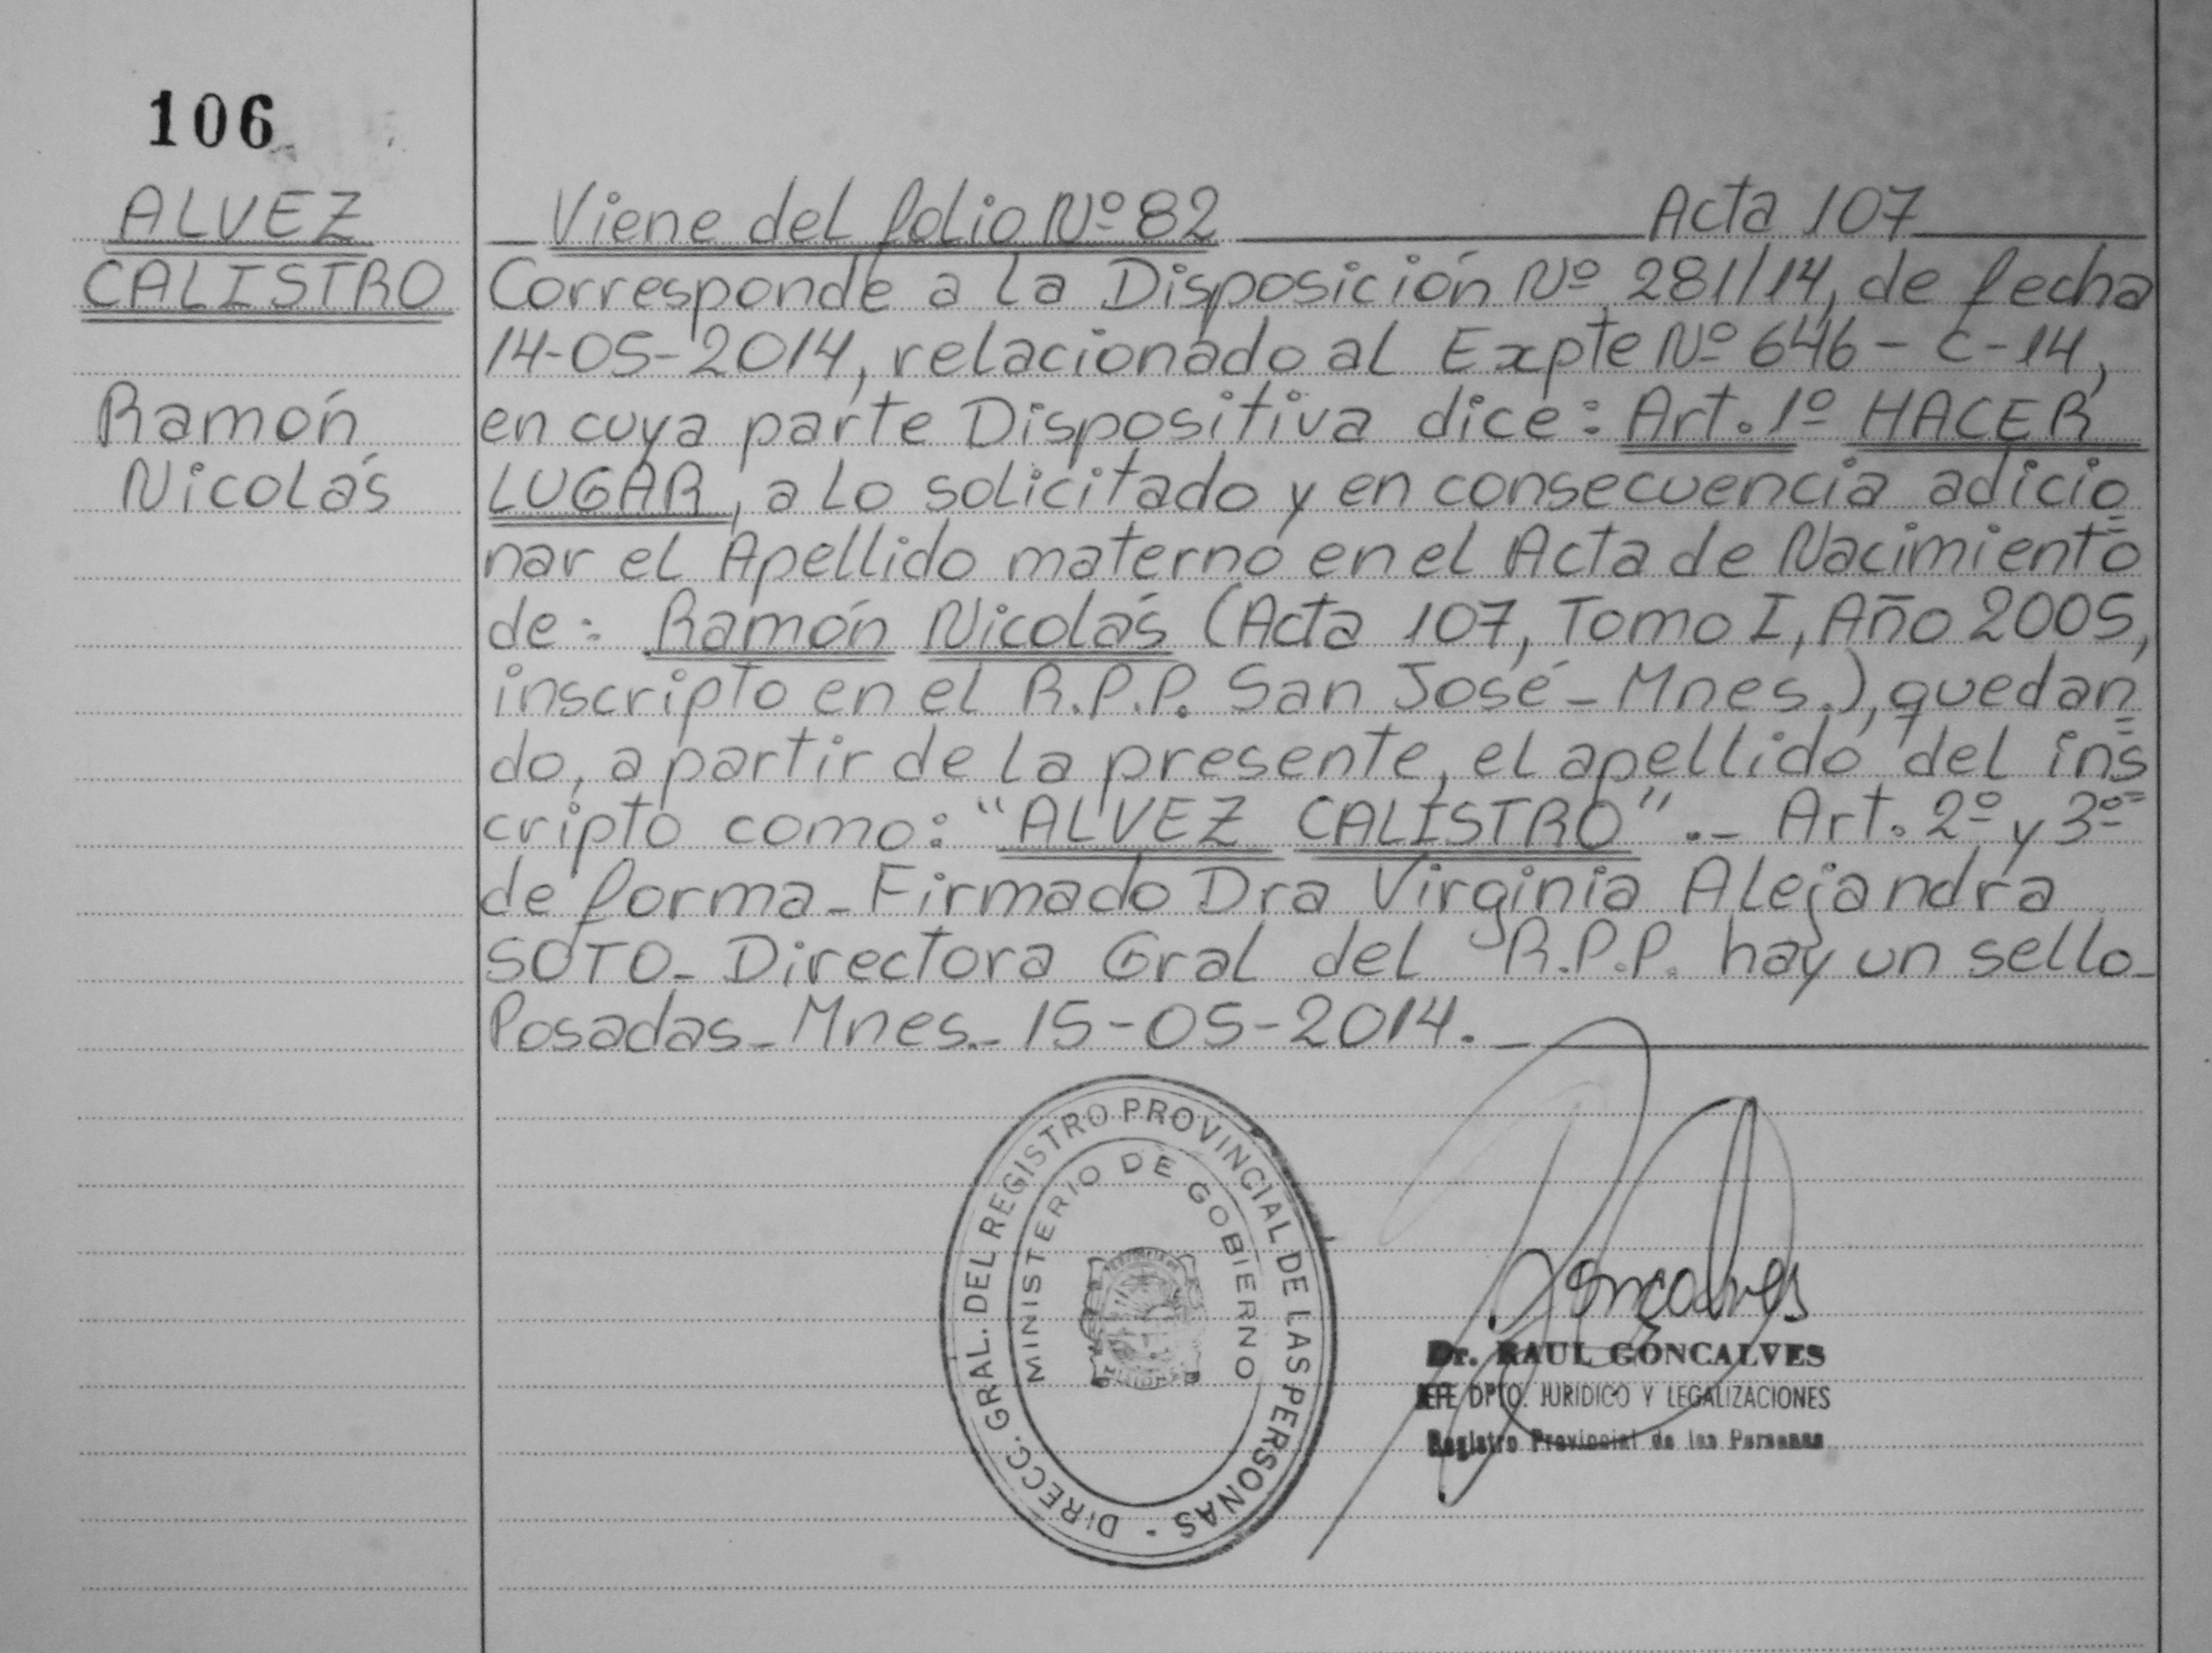 106
ALVEZ
CALISTRO
Ramón
Nicolás
_Viene del folio Nº 82 Acta 107
Corresponde a la Disposición Nº 281/14, de fecha
14-05-2014, relacionado al Expte Nº 646-C-14,
en cuya parte Dispositiva dice: Art. 1º HACER
LUGAR, a lo solicitado y en consecuencia adicio=
nar el Apellido materno en el Acta de Nacimiento
de: Ramón Nicolás (Acta 107, Tomo I, Año 2005,
inscripto en el R.P.P. San José - Mnes.), quedan=
do, a partir de la presente, el apellido del ins=
cripto como: "ALVEZ CALISTRO".- Art. 2º y 3º
de forma- Firmado Dra Virginia Alejandra
SOTO- Directora Gral del R.P.P. hay un sello-
Posadas- Mnes.- 15-05-2014.-
DIRECC. GRAL. DEL REGISTRO PROVINCIAL DE LAS PERSONAS -
MINISTERIO DE GOBIERNO
Goncalves
Dr. RAUL GONCALVES
JEFE DPTO. JURIDICO Y LEGALIZACIONES
Registro Provincial de las Personas